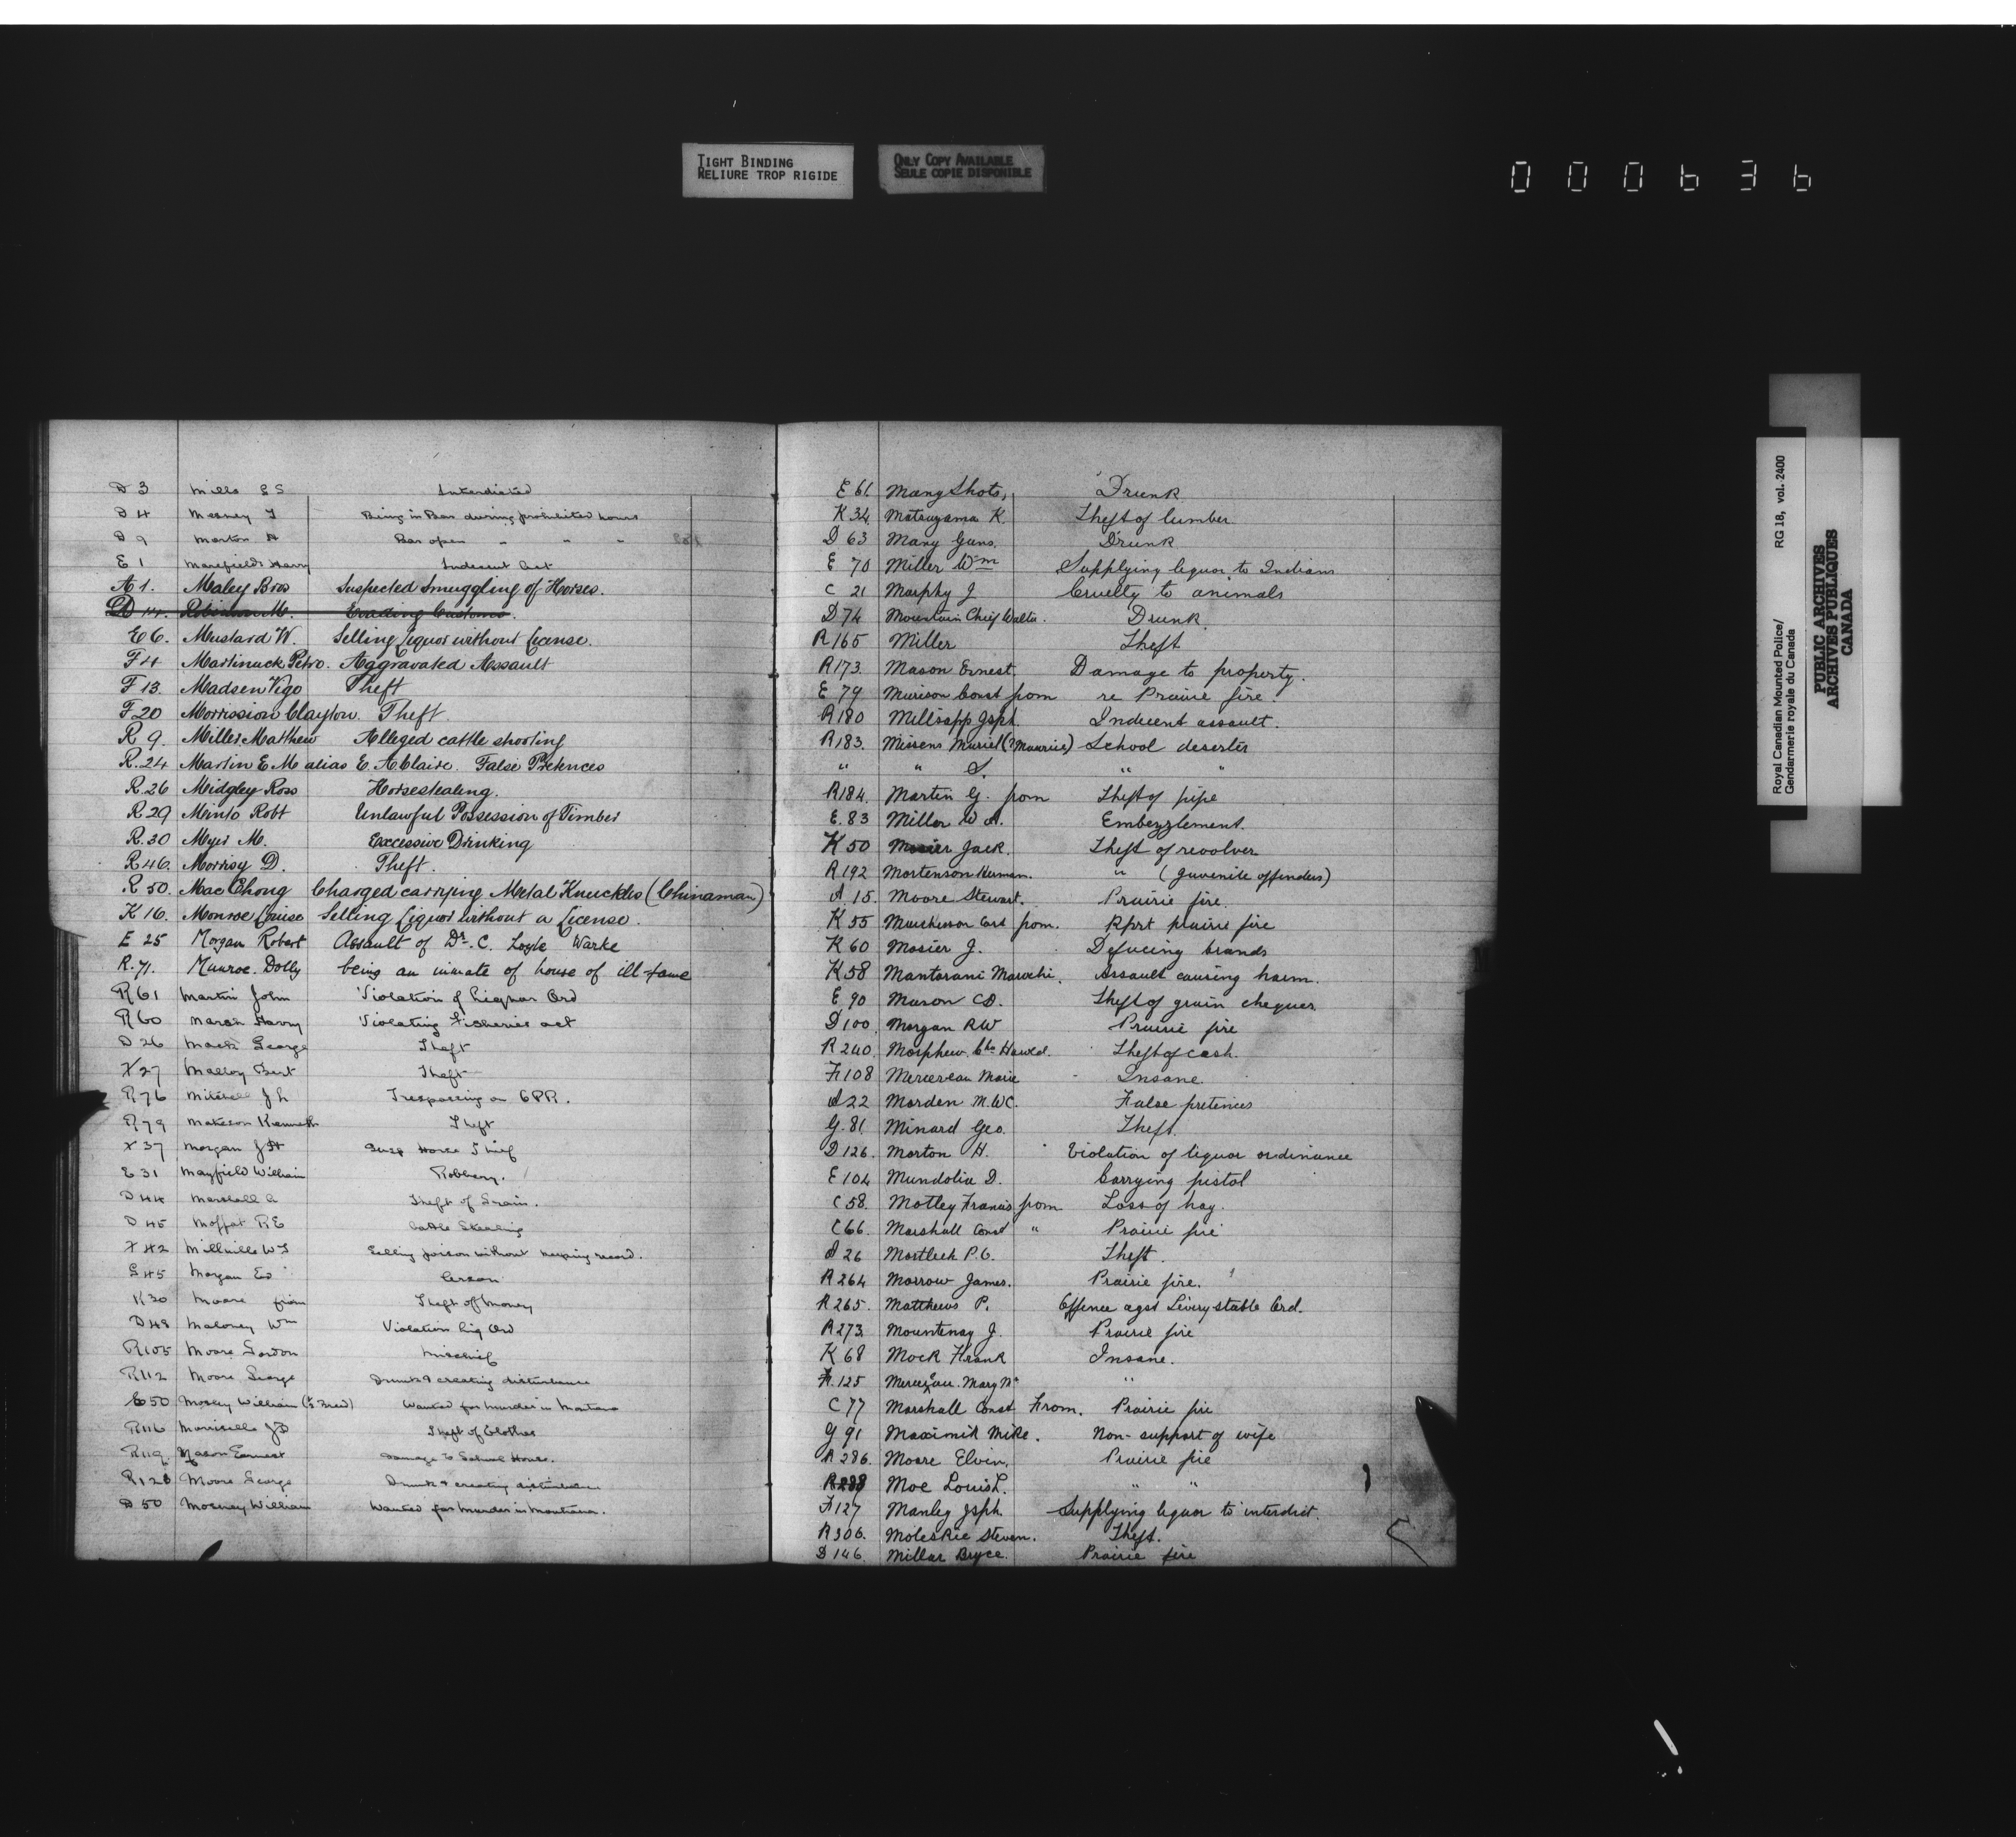 TIGHT BINDING
RELIURE TROP RIGIDE
ONLY COPY AVAILABLE
SEULE COPIE DISPONIBLE
000636
D 3 Mills E S Interdicted
D 4 Meaney T Being in Bar during prohibited hours
D 9 Morton H Bar open " " "
E 1 Harry Indecent Act
A 1. Maley Bros Suspected Smuggling of Horses.
D 14. Evading Customs.
E 6. Mustard W. Selling Liquor without License.
F 4 Martinuck Petro. Aggravated Assault
F 13. Madsen Vigo Theft
F 20 Morrission Clayton. Theft.
R 9. Miller Matthew Alleged cattle shooting
R. 24 Martin E M alias E. A Claire. False Pretences
R. 26 Midgley Ross Horsestealing.
R 29 Minto Robt Unlawful Possession of Timber
R. 30 Myer M. Excessive Drinking
R 46. Morrisy D. Theft.
R 50. Mac Chong Charged carrying Metal Knuckles (Chinaman)
K 16. Monroe Louise Selling Liquor without a License.
E 25 Morgan Robert Assault of Dr. C. Loyle Warke
R. 71. Munroe. Dolly being an inmate of house of ill-fame
R 61 Martin John Violation of Liquor Ord
R 60 Marsh Harry Violating Fisheries act
D 26 Mack George Theft
X 27 Malloy Bert Theft
R 76 Mitchell J L Trespassing on CPR.
R 79 Kenneth Theft
X 37 Morgan J H Susp Horse Thief
E 31 Mayfield William Robbery.
D 44 Marshall A Theft of Grain.
D 45 Moffat R E Cattle Stealing
X 42 Millville W T Selling poison without keeping record.
G 45 Morgan Ed Arson
K 30 Moore from Theft of Money
D 48 Maloney Wm Violation Liq Ord
R 105 Moore Gordon Mischief
R 112 Moore George Drunk & creating disturbance
E 50 William (½ Breed) Wanted for Murder in Montana
R 116 J D Theft of Clothes
R 119. Mason Earnest Damage to School House.
R 128 Moore George Drunk & creating disturbance
D 50 William Wanted for Murder in Montana.
E 61. Many Shots, Drunk
K 34. Matsuyama K. Theft of lumber
D 63 Many Guns. Drunk
E 70 Miller Wm Supplying liquor to Indians
C 21 Murphy J Cruelty to animals
D 74 Mountain Chief Walter. Drunk.
R 165 Miller Theft
R 173. Mason Ernest. Damage to property.
E 79 Murison Const from re Prairie fire.
R 180 Millsapp Jsph. Indecent assault.
R 183. Missens Muriel (? Maurice) School deserter
" " S. " "
R 184. Martin G. from Theft of pipe
E. 83 Miller W A. Embezzlement.
K 50 Mosier Jack. Theft of revolver
R 192 Mortenson Herman. " (Juvenile offenders)
A 15. Moore Stewart. Prairie fire.
K 55 from. Rprt prairie fire
K 60 Mosier J. Defacing brands
K 58 Mantorani Marochi. Assault causing harm.
E 90 Mason C D. Theft of grain cheques.
D 100. Morgan R W Prairie fire
R 240. Morphew. Chs Harold. Theft of cash.
F 108 Mercereau Marie Insane.
A 22 Morden M. W C. False pretences
G. 81. Minard Geo. Theft.
D 126. Morton H. Violation of liquor ordinance
E 104 Mundolia D. Carrying pistol
C 58. Motley Francis from Loss of hay.
C 66. Marshall Const " Prairie fire
A 26 Martlech P. C. Theft.
R 264 Morrow James. Prairie fire.
R 265. Matthews P. Offence agst Livery stable Ord.
R 273. Mountenay J. Prairie fire
K 68 Mock Frank Insane.
F. 125 Mercereau. Mary "
C 77 Marshall Const From. Prairie fire
G 91 Maximik Mike. Non-support of wife
R 286. Moore Elvin. Prairie fire
R 288 Moe Louis L. " "
F 127 Manley Jsph. Supplying liquor to interdict.
R 306. Moleskie Steven. Theft.
D 146. Millar Bryce. Prairie fire
Royal Canadian Mounted Police/ RG 18, vol. 2400
Gendarmerie royale du Canada
PUBLIC ARCHIVES
ARCHIVES PUBLIQUES
CANADA